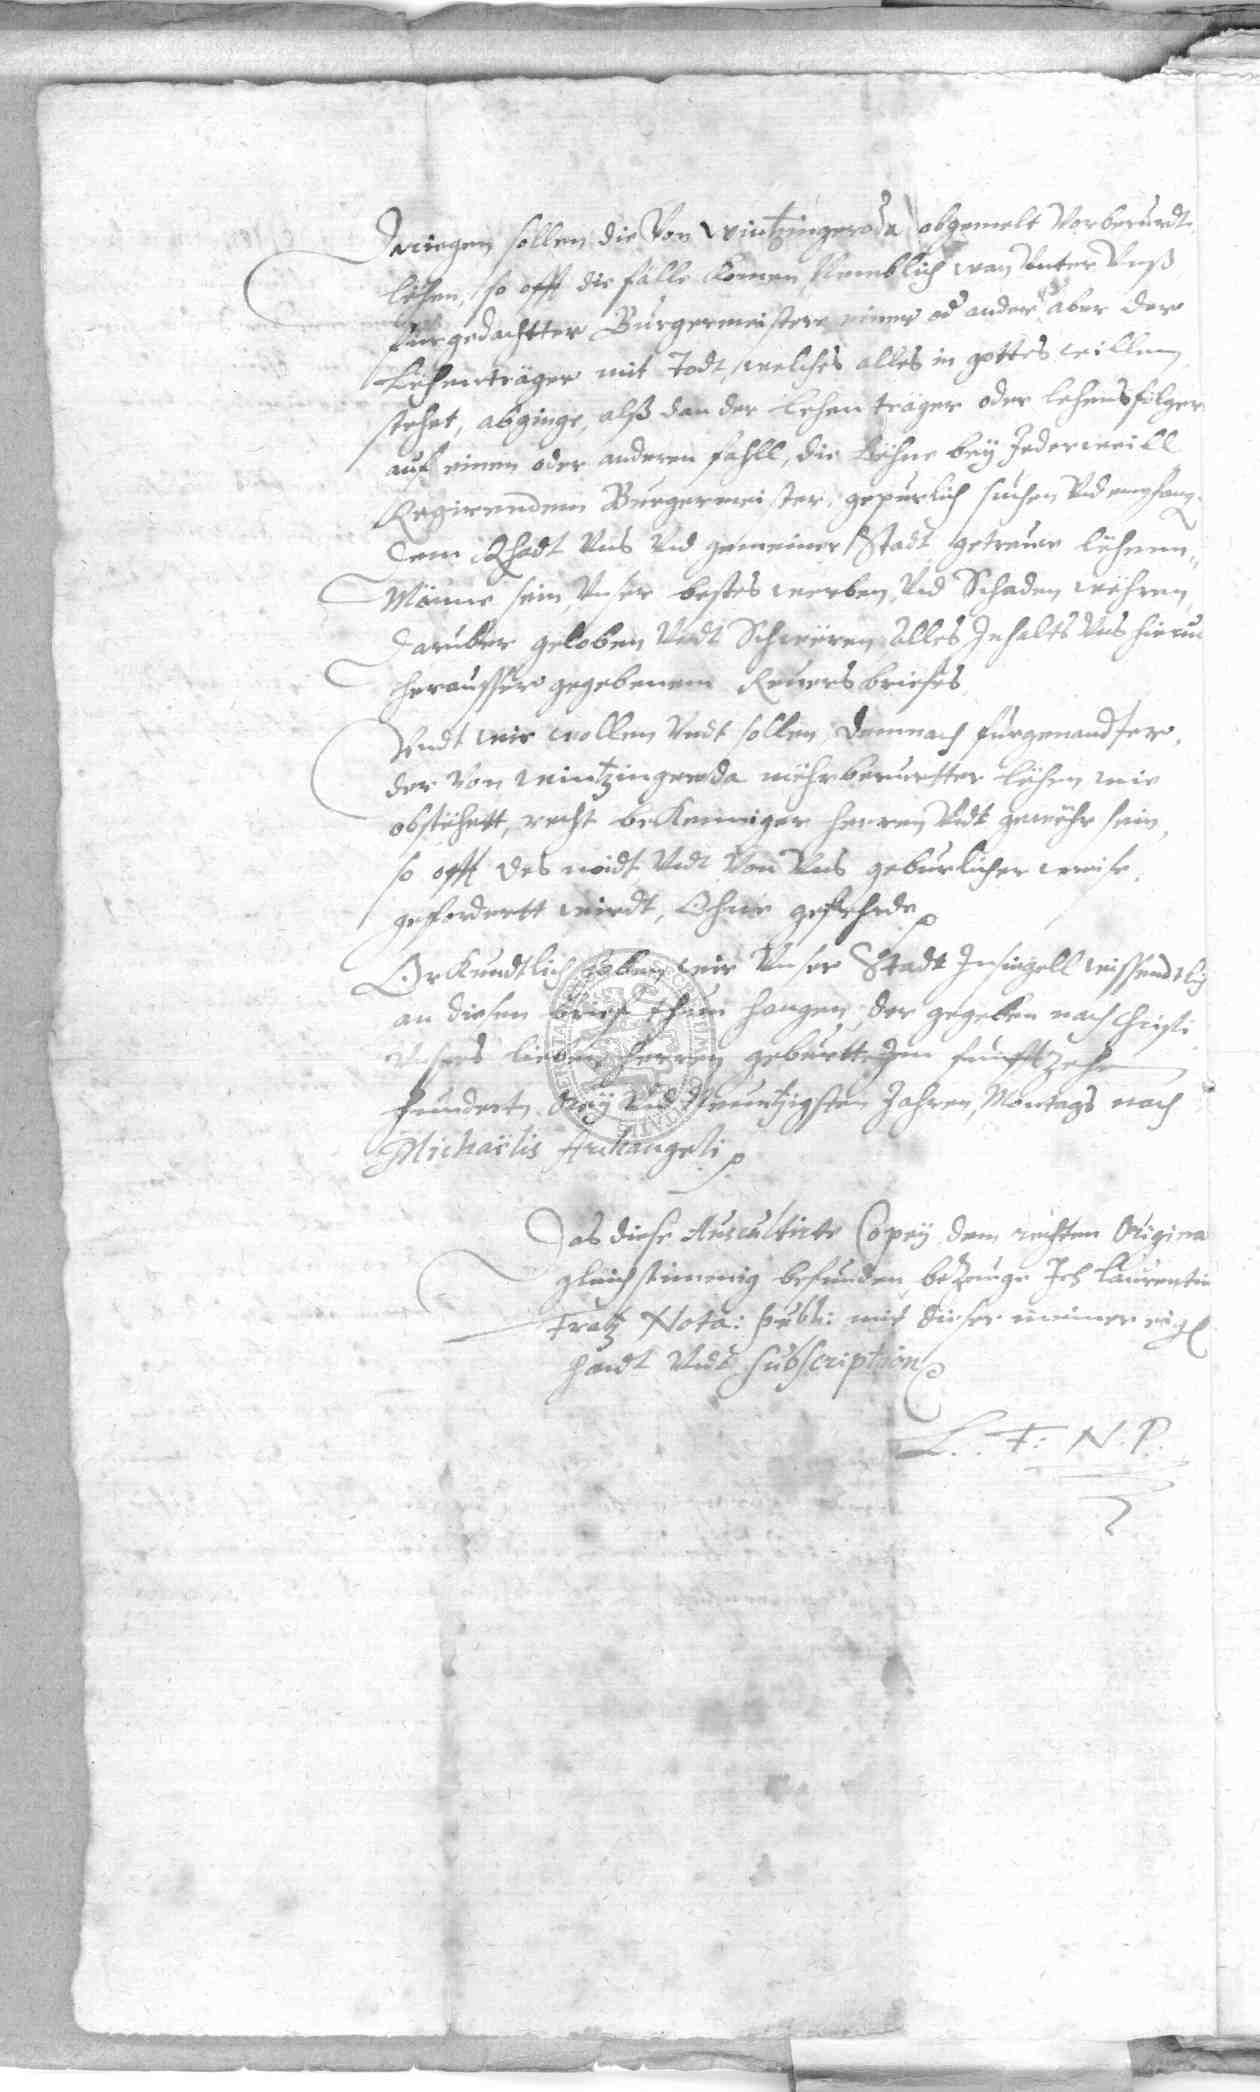 Dariegen sollen die Von Wintzingeroda obgemelt Vorberurdt
lëhen, so offt die fälle komen, Nemblich wan Unter Unß
fürgedachtter Bürgermeistere einer od ander aber der
Lehenträger mit Todt, welches alles in gottes willen
stehet, abginge, alß dan der lehen träger oder lehensfolger
auf einen oder anderen fahll, die Lëhne bey Jederweill
Regirendem Bürgermeister, gepürlich suchen Vnd empfang
dem Rhadt Vns Vnd gemeiner Stadt getreuer lëhenn„
Männe sein, Vnser bestes werben, Vnd Schaden wëhren,
darüber geloben Vndt Schwëren, Alles Inhalts Vns hierü
heraußer gegebenem Reuersbriefes
Vndt wir wollen Vndt sollen, demnach fürgenandter,
der Von Wintzingeroda mëhrberurtter lëhen, wie
obstëhett, recht bekenniger herren Vndt gewëhr sein,
so offt des noidt Vndt Von Vns gebürlicher weise,
gefordertt wirdt, Ohne gefehrde
Orkundtlich haben wir Vnser Stadt Insiegell wissendtlich
an diesen brief thun hangen, der gegeben nach Christi
Vnsers lieben herren geburtt, Im fünfftzehe
hundert, drey Vnd Neuntzigsten Jahren, Montags nach
Michaëlis Archangeli
Das diese Auscultirte Copey dem rechten Origina
gleichstimmig befunden, bezeuge Ich Laurentiu
Fratz Nota: Publi: mit dieser meiner eig
handt Vndt subscription
L. F: N. P.